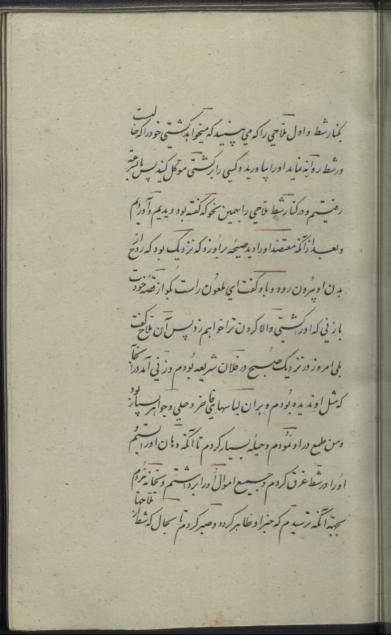 بکنار شط و اول ملاحی را که می بینید که میخواهد کشتی خود را که خالیست
در شط روانه نماید او را بیاورید و کسی را بر کشتی موکل کنید پس ما بسرعت
رفتیم و در کنار شط ملاحی را بهمین نحو که گفته بود دیدیم و آوردیم
و بعد از آنکه معتضد او را دید صیحه بر او زد که نزدیک بود که روح از
بدن او بیرون رود و باو گفت ای ملعون راست بگو از قصه خودت
با زنی که او را کشتی والا گردن ترا خواهم زد پس آن ملاح گفت
بلی امروز در نزدیک صبح در فلان شریعه بودم و زنی آمد در آنجا
که مثل او ندیده بودم و بر ان لباسهای فاخر و حلی و جواهر بسیار بود
و من طمع در او نمودم و حیله بسیار کردم تا آنکه دهان او را بستم
او را در شط غرق کردم و جمیع اموال او را برداشتم و بخانه نبردم
بجهة آنکه ترسیدم که خبر او ظاهر کردد و صبر کردم تا بحال که شط از ملاحها